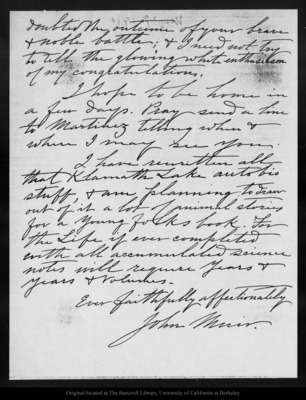 doubted the outcome of your brave
& noble battle, & I need not try
to tell the glowing white enthusiasm
of my congratulations.
I hope to be home in
a few days. Pray send a line
to Martinez telling when &
where I may see you.
I have rewritten all
that Klamath Lake autobio
stuff, & am planning to draw
out of it a lot of animal stories
for a Young folks book. For
the Life if ever completed
with all accumulated science
notes will require Years &
Years & Volumes.
Ever faithfully affectionately
John Muir.
Original located at The Bancroft Library, University of California at Berkeley